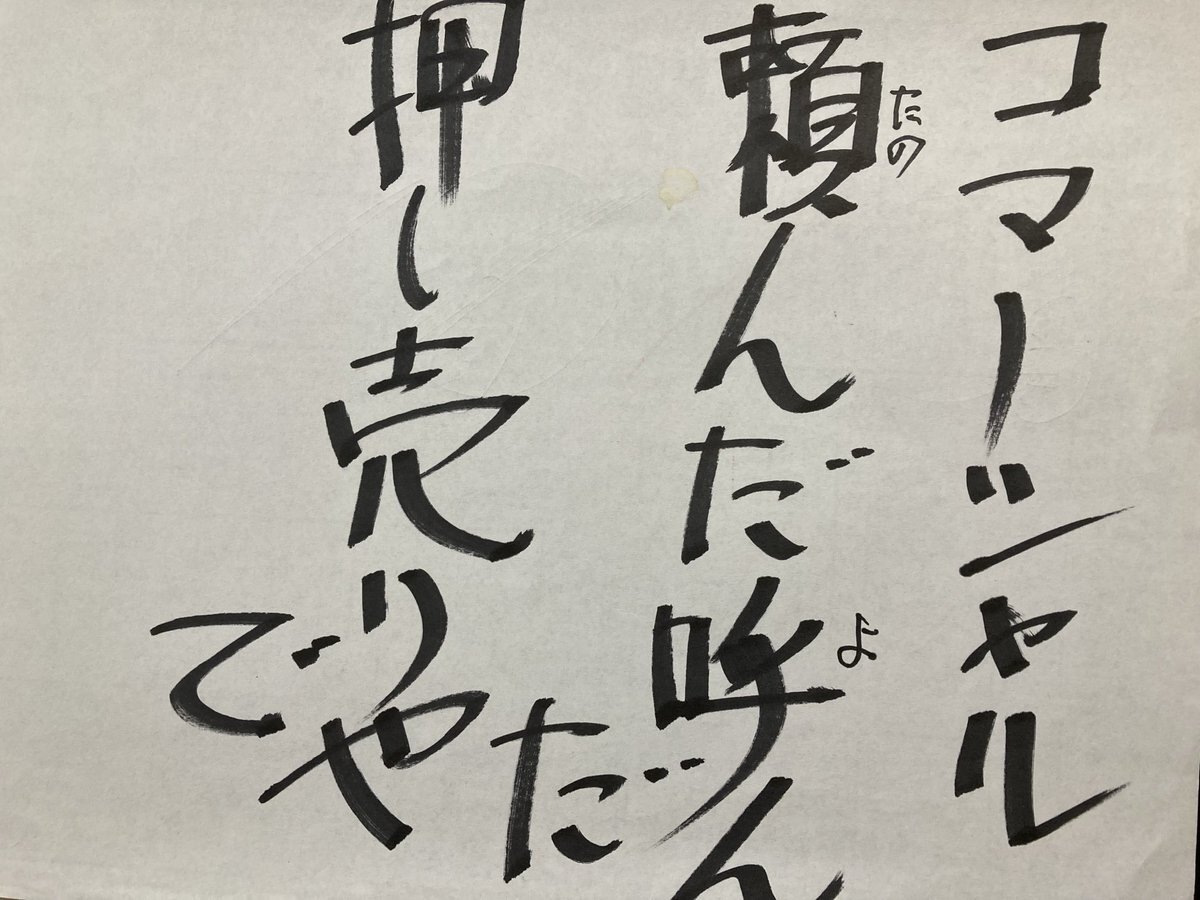 コマーシャル
たの
よ
頼んだ呼んだ
押し売りやで